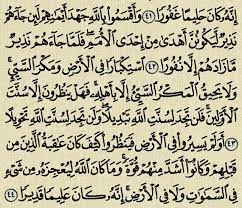 إِنَّهُۥ كَانَ حَلِيمًا غَفُورًا ٤١ وَأَقۡسَمُواْ بِٱللَّهِ جَهۡدَ أَيۡمَٰنِهِمۡ لَئِن جَآءَهُمۡ
نَذِيرٞ لَّيَكُونُنَّ أَهۡدَىٰ مِنۡ إِحۡدَى ٱلۡأُمَمِۖ فَلَمَّا جَآءَهُمۡ نَذِيرٞ
مَّا زَادَهُمۡ إِلَّا نُفُورًا ٤٢ ٱسۡتِكۡبَارٗا فِي ٱلۡأَرۡضِ وَمَكۡرَ ٱلسَّيِّيِٕۚ
وَلَا يَحِيقُ ٱلۡمَكۡرُ ٱلسَّيِّئُ إِلَّا بِأَهۡلِهِۦۚ فَهَلۡ يَنظُرُونَ إِلَّا سُنَّتَ
ٱلۡأَوَّلِينَۚ فَلَن تَجِدَ لِسُنَّتِ ٱللَّهِ تَبۡدِيلٗاۖ وَلَن تَجِدَ لِسُنَّتِ ٱللَّهِ تَحۡوِيلًا
٤٣ أَوَلَمۡ يَسِيرُواْ فِي ٱلۡأَرۡضِ فَيَنظُرُواْ كَيۡفَ كَانَ عَٰقِبَةُ ٱلَّذِينَ مِن
قَبۡلِهِمۡ وَكَانُوٓاْ أَشَدَّ مِنۡهُمۡ قُوَّةٗۚ وَمَا كَانَ ٱللَّهُ لِيُعۡجِزَهُۥ مِن شَيۡءٖ
فِي ٱلسَّمَٰوَٰتِ وَلَا فِي ٱلۡأَرۡضِۚ إِنَّهُۥ كَانَ عَلِيمٗا قَدِيرٗا ٤٤